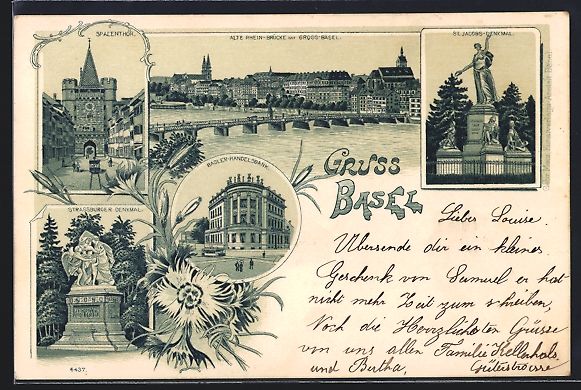 SPALENTHOR.
ALTE RHEIN-BRÜCKE MIT GROSS-BASEL.
ST. JACOBS-DENKMAL.
BASLER-HANDELSBANK.
GRUSS
BASEL
STRASSBURGER DENKMAL.
4437.
Lieber Louise.
Übersende dir ein kleines
Geschenk von Samuel er hat
nicht mehr Zeit zum schreiben,
Noch die Herzlichsten Grüsse
von uns allen Familie Kellenhals
und Bertha,
Güterstrasse